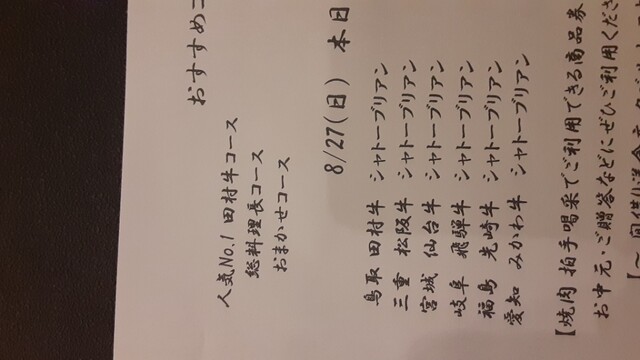 おすすめコ
人気No.1 田村牛コース
総料理長コース
おまかせコース
8/27(日) 本日
鳥取 田村牛 シャトーブリアン
三重 松阪牛 シャトーブリアン
宮城 仙台牛 シャトーブリアン
岐阜 飛騨牛 シャトーブリアン
福島 先崎牛 シャトーブリアン
愛知 みかわ牛 シャトーブリアン
【焼肉 拍手喝采でご利用できる商品券
お中元・ご贈答などにぜひご利用くださ